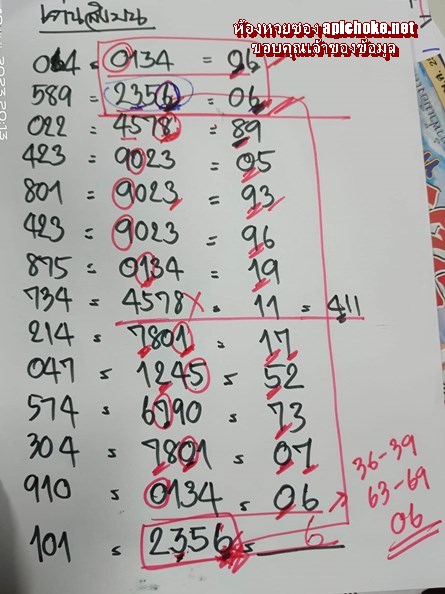 ห้องหวยซอง aplchoke.net
ขอบคุณเจ้าของข้อมูล
064 = 0134 = 96
589 = 2356 = 06
022 = 4578 = 89
423 = 9023 = 05
801 = 9023 = 93
423 = 9023 = 96
875 = 0134 = 19
734 = 4578 x = 11 = 411
214 = 7801 = 17
047 = 1245 = 52
574 = 6790 = 73
304 = 7801 = 07
910 = 0134 = 06
101 = 2356 = 6
36-39
63-69
06